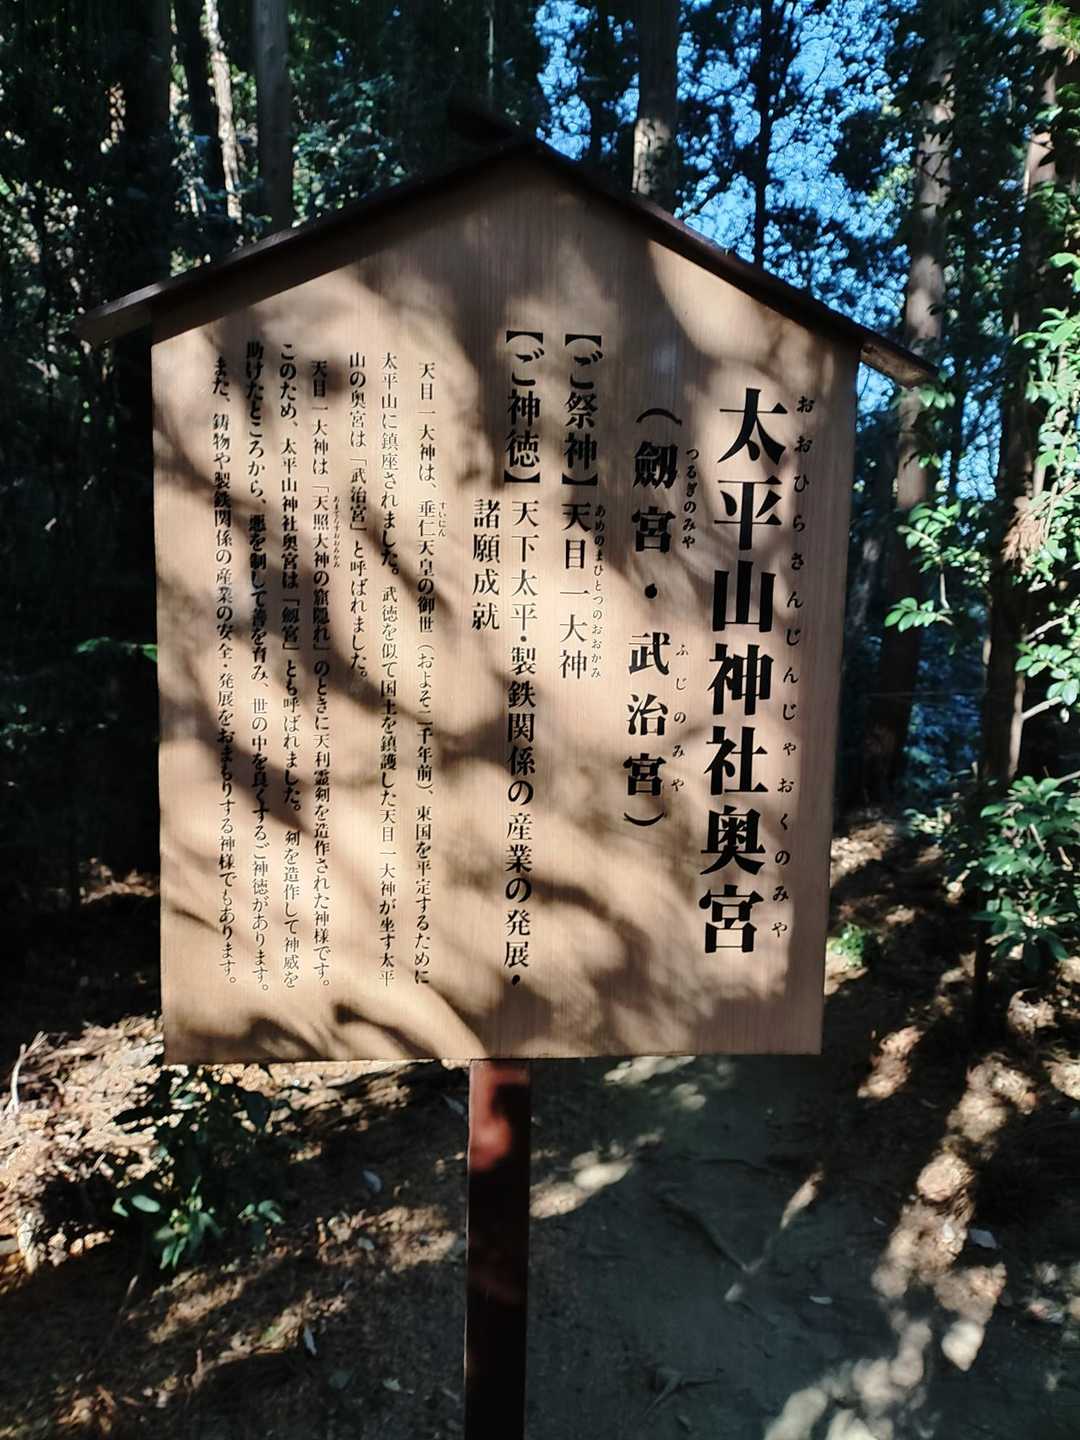 太平山神社奥宮
おおひらさんじんじゃおくのみや
（劔宮・武治宮）
つるぎのみや ふじのみや
【ご祭神】天目一大神
あめのまひとつのおおかみ
【ご神徳】天下太平・製鉄関係の産業の発展・
諸願成就
天目一大神は、垂仁天皇の御世（およそ二千年前）、東国を平定するために
すいにん
太平山に鎮座されました。武徳を似て国土を鎮護した天目一大神が坐す太平
山の奥宮は「武治宮」と呼ばれました。
天目一大神は「天照大神の窟隠れ」のときに天利霊剣を造作された神様です。
あまてらすおおみかみ
このため、太平山神社奥宮は「劔宮」とも呼ばれました。剣を造作して神威を
助けたところから、悪を制して善を育み、世の中を良くするご神徳があります。
また、鋳物や製鉄関係の産業の安全・発展をおまもりする神様でもあります。